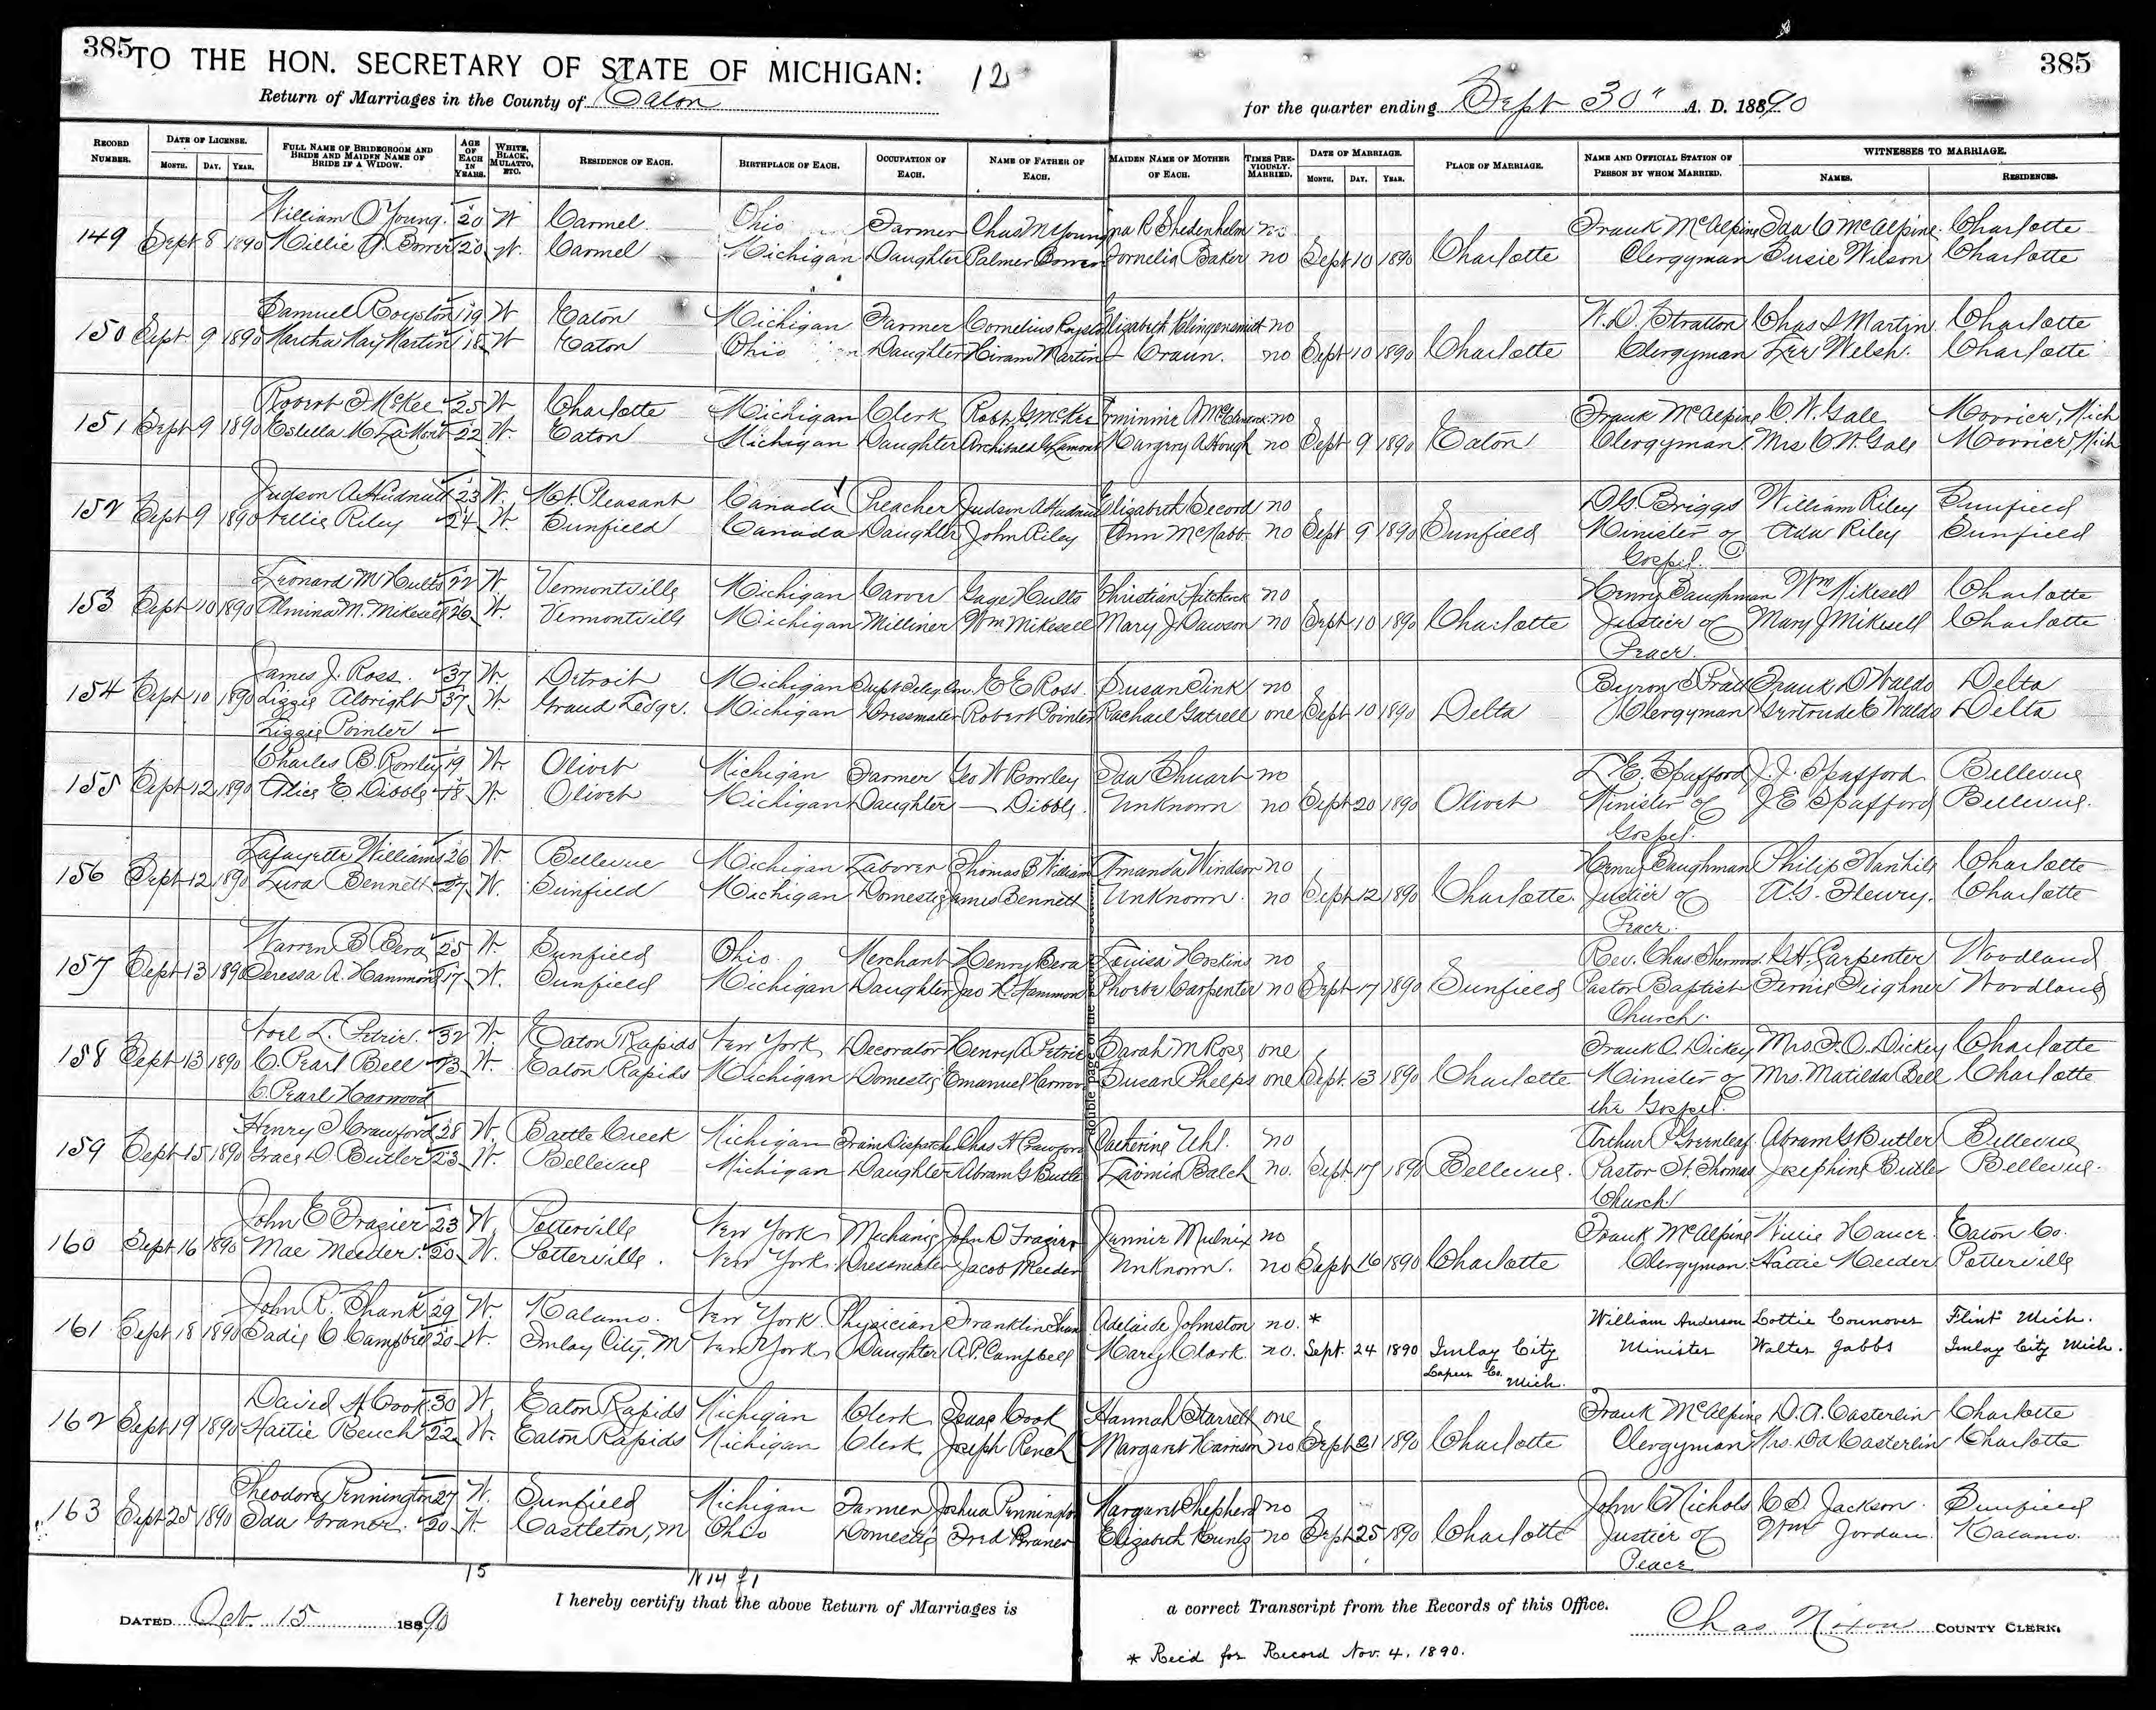 385 TO THE HON. SECRETARY OF STATE OF MICHIGAN: 12 385
Return of Marriages in the County of Eaton for the quarter ending Sept 30" A. D. 1890
RECORD NUMBER. DATE OF LICENSE. MONTH. DAY. YEAR. FULL NAME OF BRIDEGROOM AND BRIDE AND MAIDEN NAME OF BRIDE IF A WIDOW. AGE OF EACH IN YEARS. WHITE, BLACK, MULATTO, ETC. RESIDENCE OF EACH. BIRTHPLACE OF EACH. OCCUPATION OF EACH. NAME OF FATHER OF EACH. MAIDEN NAME OF MOTHER OF EACH. TIMES PREVIOUSLY MARRIED. DATE OF MARRIAGE. MONTH. DAY. YEAR. PLACE OF MARRIAGE. NAME AND OFFICIAL STATION OF PERSON BY WHOM MARRIED. WITNESSES TO MARRIAGE. NAMES. RESIDENCES.
William O Young 20 W Carmel Ohio Farmer Chas M Young R Shedenhelm no Frank McAlpine Ida C McAlpine Charlotte
149 Sept 8 1890 Millie J Bower 20 W. Carmel Michigan Daughter Palmer Bower Cornelia Baker no Sept 10 1890 Charlotte Clergyman Susie Wilson Charlotte
Samuel Royston 19 W Eaton Michigan Farmer Cornelius Royston Elizabeth Klingensmith no W. D. Stratton Chas S Martin Charlotte
150 Sept 9 1890 Martha May Martin 18 W Eaton Ohio Daughter Hiram Martin — Craun. no Sept 10 1890 Charlotte Clergyman Lee Welsh. Charlotte
Robert F McKee 25 W Charlotte Michigan Clerk Robt. G McKee no Frank McAlpine C. W. Gale Morrice, Mich
151 Sept 9 1890 Estella M LaMont 22 W. Eaton Michigan Daughter Archibald Lamont Margery A Hough no Sept 9 1890 Eaton Clergyman Mrs C. W. Gale Morrice, Mich
Judson A Hudnutt 23 W. Mt. Pleasant Canada Preacher Judson A Hudnutt Elizabeth Secord no Briggs William Riley Sunfield
152 Sept 9 1890 Nellie Riley 24 W. Sunfield Canada Daughter John Riley Ann McNabb no Sept 9 1890 Sunfield Minister of Ada Riley Sunfield
Gospel.
Leonard M Hults 22 W. Vermontville Michigan Carver Gage Hults Christian Hitchcock no Henry Baughman Wm Mikesell Charlotte
153 Sept 10 1890 Almina M. Mikesell 26 W. Vermontville Michigan Milliner Wm Mikesell Mary J Dawson no Sept 10 1890 Charlotte Justice of Mary J Mikesell Charlotte
Peace.
James J. Ross. 37 W. Detroit Michigan Supt Teleg Co. E E Ross Susan Fink no Byron S Pratt Frank D Waldo Delta
154 Sept 10 1890 Lizzie Albright 37 W Grand Ledge. Michigan Dressmaker Robert Pointer Rachael Gatrell one Sept 10 1890 Delta Clergyman Gertrude C Waldo Delta
Lizzie Pointer
Charles B. Rowley 19 W Olivet Michigan Farmer Geo W Rowley Ida Shuart no L. E. Spafford J. J. Spafford Bellevue
155 Sept 12 1890 Alice E. Dibble 18 W. Olivet Michigan Daughter — Dibble. Unknown no Sept 20 1890 Olivet Minister of J E Spafford Bellevue.
Gospel.
Lafayette Williams 26 W. Bellevue Michigan Laborer Thomas B William Amanda Windsor no Henry Baughman Philip Vanhile Charlotte
156 Sept 12 1890 Lura Bennett 27 W. Sunfield Michigan Domestic James Bennett Unknown. no Sept 12 1890 Charlotte. Justice of A. G. Fleury. Charlotte
Peace.
Warren B Bera 25 W. Sunfield Ohio. Merchant Henry Bera Louisa Hoskins no Rev. Chas Shermon. C. H. Carpenter Woodland
157 Sept 13 1890 Teressa A. Hammond 17 W. Sunfield Michigan Daughter Jno H. Hammond Phoebe Carpenter no Sept 17 1890 Sunfield Pastor Baptist Fernie Feighner Woodland
Church.
Noel L. Petrie. 32 W. Eaton Rapids New York Decorator Henry A Petrie Sarah M Ross one Frank O. Dickey Mrs. F. O. Dickey Charlotte
158 Sept 13 1890 C. Pearl Bell 23 W. Eaton Rapids Michigan Domestic Emanuel Harwood Susan Phelps one Sept. 13 1890 Charlotte Minister of Mrs. Matilda Bell Charlotte
C. Pearl Harwood the Gospel.
Henry F Crawford 28 W. Battle Creek Michigan Train Dispatcher Chas H Crawford Catherine Uhl. no Arthur P Greenleaf Abram G Butler Bellevue
159 Sept 15 1890 Grace D Butler 23 W. Bellevue Michigan Daughter Abram G Butler Balch no. Sept. 17 1890 Bellevue. Pastor St. Thomas Josephine Butler Bellevue.
Church
John E Frazier 23 W. Potterville New York Mechanic John D Frazier Jennie Mulnix no Frank McAlpine Willie Hauer. Eaton Co.
160 Sept 16 1890 Mae Meeder. 20 W. Potterville. New York. Dressmaker Jacob Meeder Unknown. no Sept 16 1890 Charlotte Clergyman. Hattie Meeder Potterville
John R. Shank 29 W. Kalamo. New York. Physician Franklin Shank Adelaide Johnston no. * William Anderson Lottie Counover Flint Mich.
161 Sept 18 1890 Sadie C Campbell 20 W Imlay City, M New York Daughter A. P. Campbell Mary Clark no. Sept. 24 1890 Imlay City Minister Walter Jabbs Imlay City Mich.
Lapeer Co. Mich.
David H Cook 30 W. Eaton Rapids Michigan Clerk Isaac Cook Hannah Starrett one Frank McAlpine D. A. Casterlin Charlotte
162 Sept 19 1890 Hattie Rench 22 W. Eaton Rapids Michigan Clerk Joseph Rench Margaret Harrison no Sept 21 1890 Charlotte Clergyman Mrs. D A Casterlin Charlotte
Theodore Pennington 27 W. Sunfield Michigan Farmer Joshua Pennington Margaret Shepherd no John C Nichols C D. Jackson. Sunfield
163 Sept 25 1890 Ida Graner. 20 W. Castleton, M Ohio Domestic Fred Graner Elizabeth Kuntz no Sept 25 1890 Charlotte Justice of Wm Jordan Kalamo.
Peace
15 N 14 f 1
I hereby certify that the above Return of Marriages is a correct Transcript from the Records of this Office.
DATED Oct. 15 1890 Chas Nixon COUNTY CLERK.
* Rec'd for Record Nov. 4. 1890.